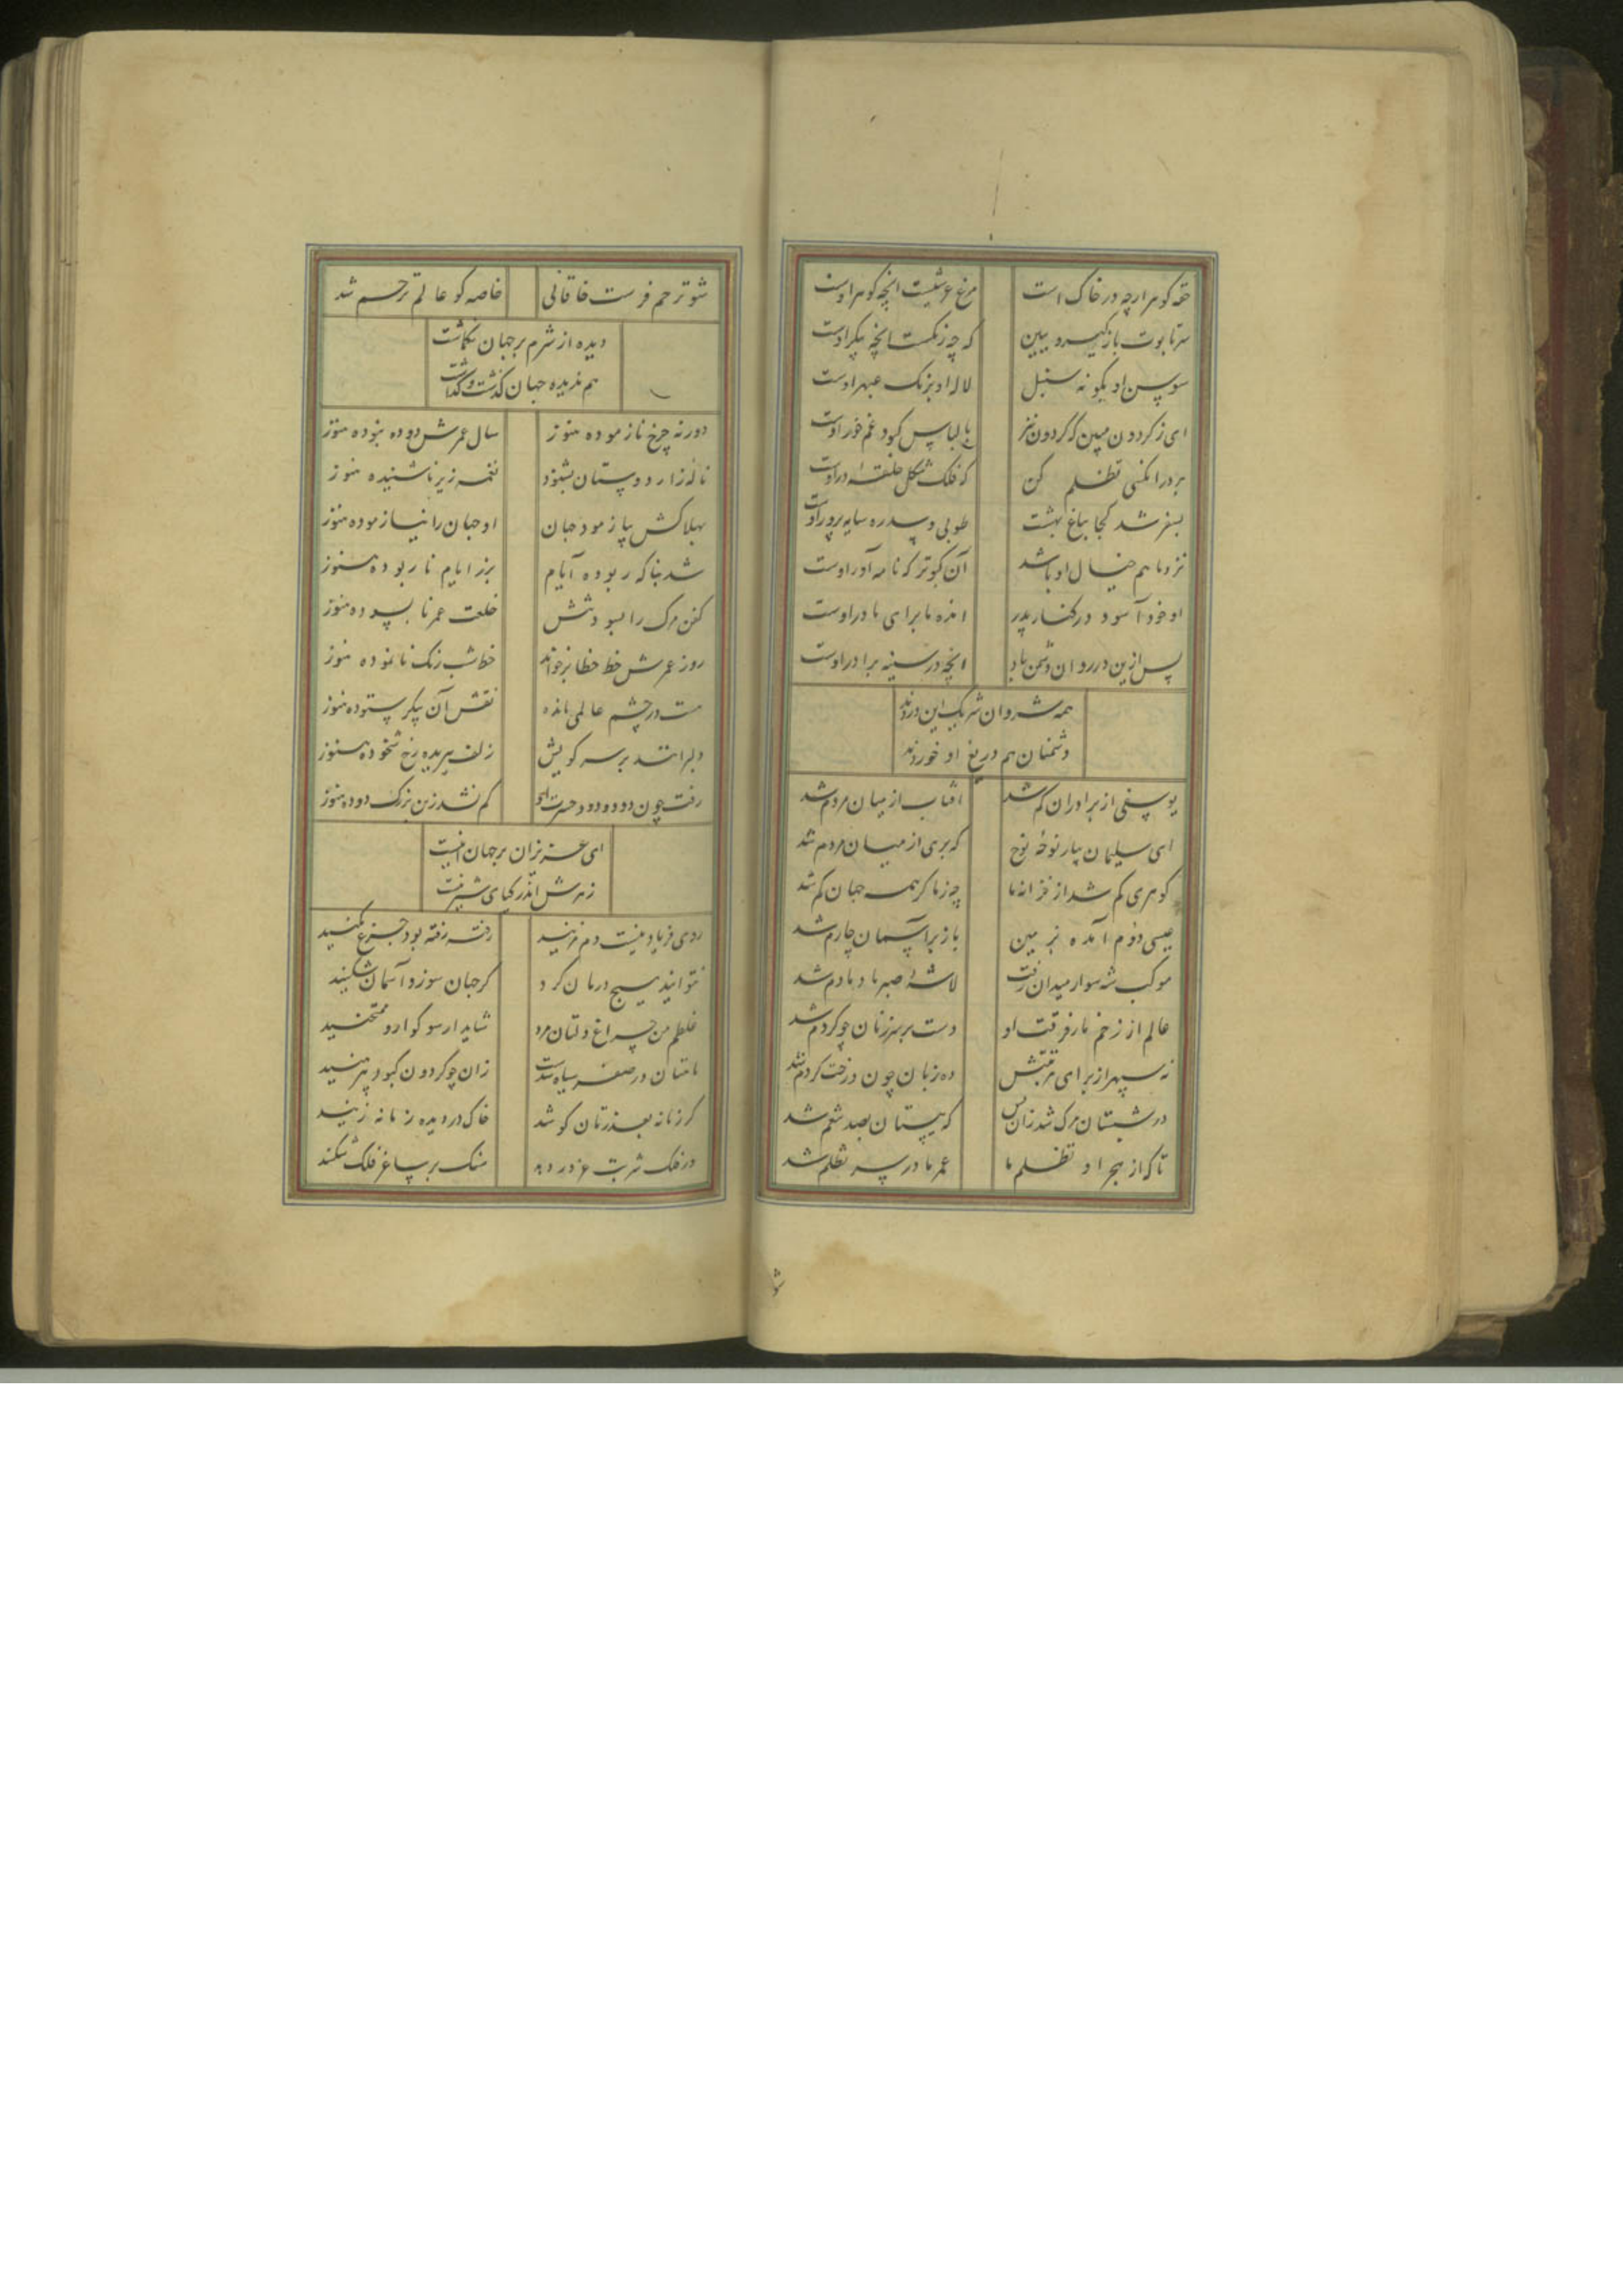 حقه کوهر ارچه در خاک است مرغ عرشیست انچه کوهر اوست
سر تابوت باز کیرید و ببین که چه رنکست انچه پیکر اوست
سوسن او بکونه سنبل لاله او برنک عبهر اوست
ای ز کردون مبین که کردون نیز با لباس کبود غم خور اوست
بر در انکسی تظلم کن که فلک شکل حلقه در اوست
بسفر شد کجا بباغ بهشت طوبی و سدره سایه پرور اوست
نزد ما هم خیال او باشد آن کبوتر که نامه آور اوست
او خود آسود در کنار پدر انده ما برای مادر اوست
پس ازین در روان دشمن باد انچه در سینه برادر اوست
همه شروان شریک این دردند
دشمنان هم دریغ او خوردند
یوسفی از برادران کم شد افتاب از میان مردم شد
ای سلیمان بیار نوحه نوح که پری از میان مردم شد
کوهری کم شد از خزانه ما چه ز ما کز همه جهان کم شد
عیسی دوم آمده بزمین باز بر آسمان چارم شد
موکب شه سوار میدان رفت لاشه صبر ما دمادم شد
عالم از زخم مار فرقت او دست بر سر زنان چو کژدم شد
نه سپهر از برای مرثیتش ده زبان چون درخت کندم شد
در شبستان مرک شد زان پس که ببستان بصد تنعم شد
تا که از هجر او تظلم ما عمر ما در سر تظلم شد
شو
شو ترحم فرست خاقانی خاصه کو عالم ترحم شد
دیده از شرم بر جهان نکماشت
هم ندیده جهان کذشت و کذاشت
دور نه چرخ نازموده هنوز سال عمرش دو ده نبوده هنوز
ناله زار دوستان بشنود نغمه زیر ناشنیده هنوز
بهلاکش بیازمود جهان او جهان را نیازموده هنوز
شد بناکه ربوده آیام بر ز ایام نا ربوده هنوز
کفن مرک را بسود تنش خلعت عمر نابسوده هنوز
روز عمرش خط خطا بر خواند خط شب رنک نانموده هنوز
مست در چشم عالمی مانده نقش آن پیکر ستوده هنوز
دلبرانند بر سر کویش زلف ببریده رخ شخوده هنوز
رفت چون دود و دود حسرت او کم نشد زین بزرک دوده هنوز
ای عزیزان بر جهان اینست
زهرش اندر کیای شیرینست
روی فریاد نیست دم مزنید رفته رفته بود جزع مکنید
نتوانید هیچ درمان کرد کر جهان سوز و آسمان شکنید
غلطم من چراغ دلتان مرد شاید ار سوکوار و ممتحنید
ماهتان در صفر سیاه شدست زان چو کردون کبود پیرهنید
کر زمانه بعذرتان کوشد خاک در دیده زمانه زنید
ور فلک شربت غرور دهد سنک بر ساغر فلک شکنید